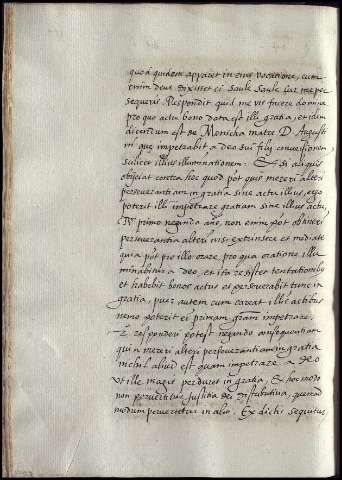 quod quidem apparet in eius vocatione, cum
enim deus dixisset ei Saule Saule cur me per
sequeris. Respondit quid me vis facere domine
pro quo actu bono dota est illi gratia, et idem
dicendum est de Monicha matre D. August
ini que impetrabit a deo sui filij conversionem,
scilicet illius illuminationem. Et si aliquis
obijciat contra hec quod pót quis mereri alteri
perseverantiam in gratia sine actu illius, ergo
poterit illi impetrare gratiam sine illius actu,
primo negando añs, non enim pót obtineri
perseverantia alteri nisi extrinsece et mediate
quia pót pro illo orare, pro qua oratione ille
minabitur a deo, et ita resistet tentationibo
et habebit bonos actus et perseverabit tunc in
gratia, puer autem cum careat illis actibus
nemo poterit ei primam grám impetrare.
2 responderi potest negando consequentiam
quia mereri alteri perseverantiam in gratia
nichil aliud est quam impetrare a deo
ut ille magis perduret in gratia, et hoc modo
non pervertitur justicia dei distributiva, quemad
modum perverteretur in alio. Ex dictis sequitur